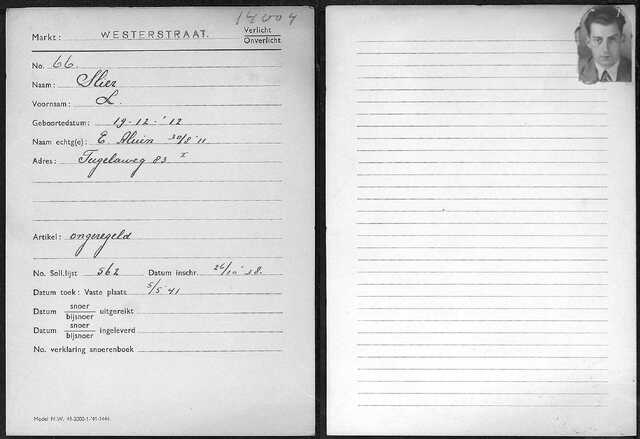 14004
Markt: WESTERSTRAAT. Verlicht
Onverlicht
No. 66.
Naam: Slier
Voornaam: L.
Geboortedatum: 19-12-'12
Naam echtg(e): E. 30/8 '11
Adres: Tugelaweg 83 I
Artikel: ongeregeld
No. Soll.lijst 562 Datum inschr. 26/10 '38.
Datum toek: Vaste plaats 5/5 '41
Datum snoer
bijsnoer uitgereikt
Datum snoer
bijsnoer ingeleverd
No. verklaring snoerenboek